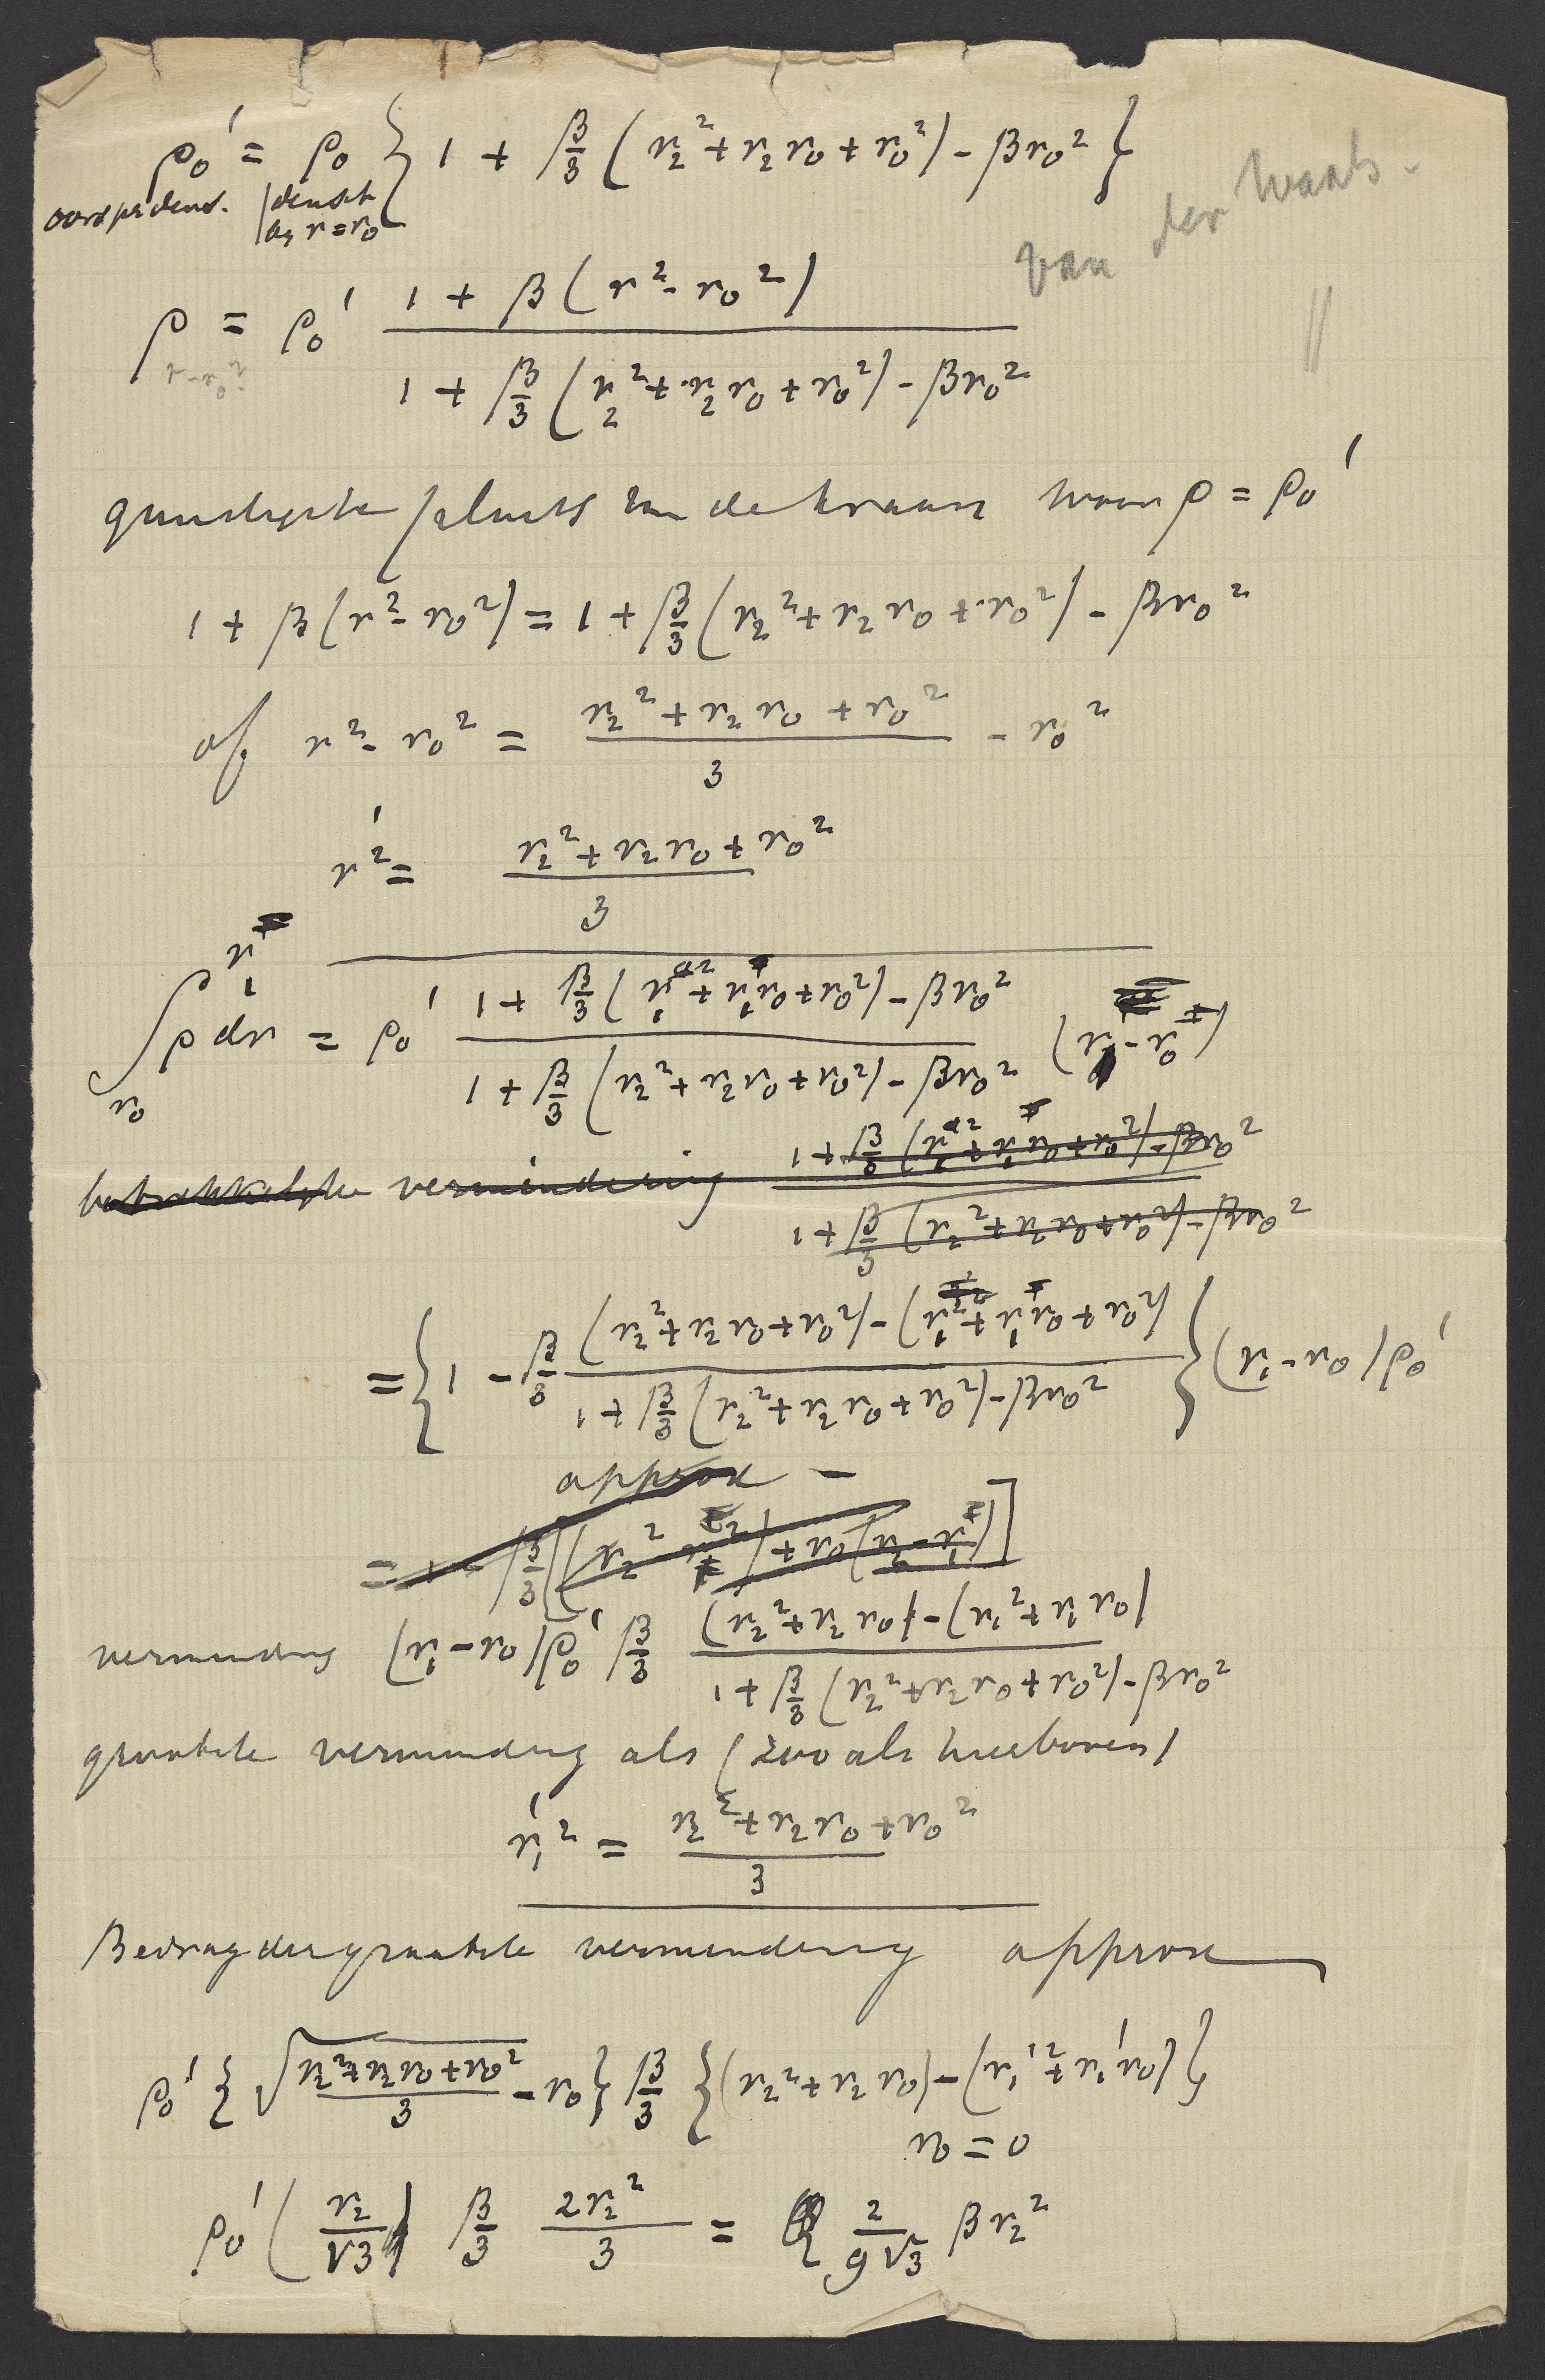 ρ₀' = ρ₀ {1 + β/3 (r₂² + r₂r₀ + r₀²) − βr₀²}
van der Waals.
ρ = ρ₀' (1 + β(r² − r₀²)) / (1 + β/3 (r₂² + r₂r₀ + r₀²) − βr₀²)
r − r₀²
plaats in de kraan waar ρ = ρ₀'
1 + β(r² − r₀²) = 1 + β/3 (r₂² + r₂r₀ + r₀²) − βr₀²
of r² − r₀² = (r₂² + r₂r₀ + r₀²)/3 − r₀²
r'² = (r₂² + r₂r₀ + r₀²)/3
∫ᵣ₀ʳ¹ ρ dr = ρ₀' (1 + β/3 (r₁² + r₁r₀ + r₀²) − βr₀²) / (1 + β/3 (r₂² + r₂r₀ + r₀²) − βr₀²) (r₁ − r₀)
vermindering
= {1 − β/3 ((r₂² + r₂r₀ + r₀²) − (r₁² + r₁r₀ + r₀²)) / (1 + β/3 (r₂² + r₂r₀ + r₀²) − βr₀²)} (r₁ − r₀) ρ₀'
approx —
vermindering (r₁ − r₀) ρ₀' β/3 ((r₂² + r₂r₀) − (r₁² + r₁r₀)) / (1 + β/3 (r₂² + r₂r₀ + r₀²) − βr₀²)
grootste vermindering als (zooals hierboven)
r₁² = (r₂² + r₂r₀ + r₀²)/3
Bedrag der grootste vermindering approx
ρ₀' {√((r₂² + r₂r₀ + r₀²)/3) − r₀} β/3 {(r₂² + r₂r₀) − (r₁² + r₁r₀)}
r₀ = 0
ρ₀' (r₂/√3) β/3 2r₂²/3 = 2/(9√3) βr₂²